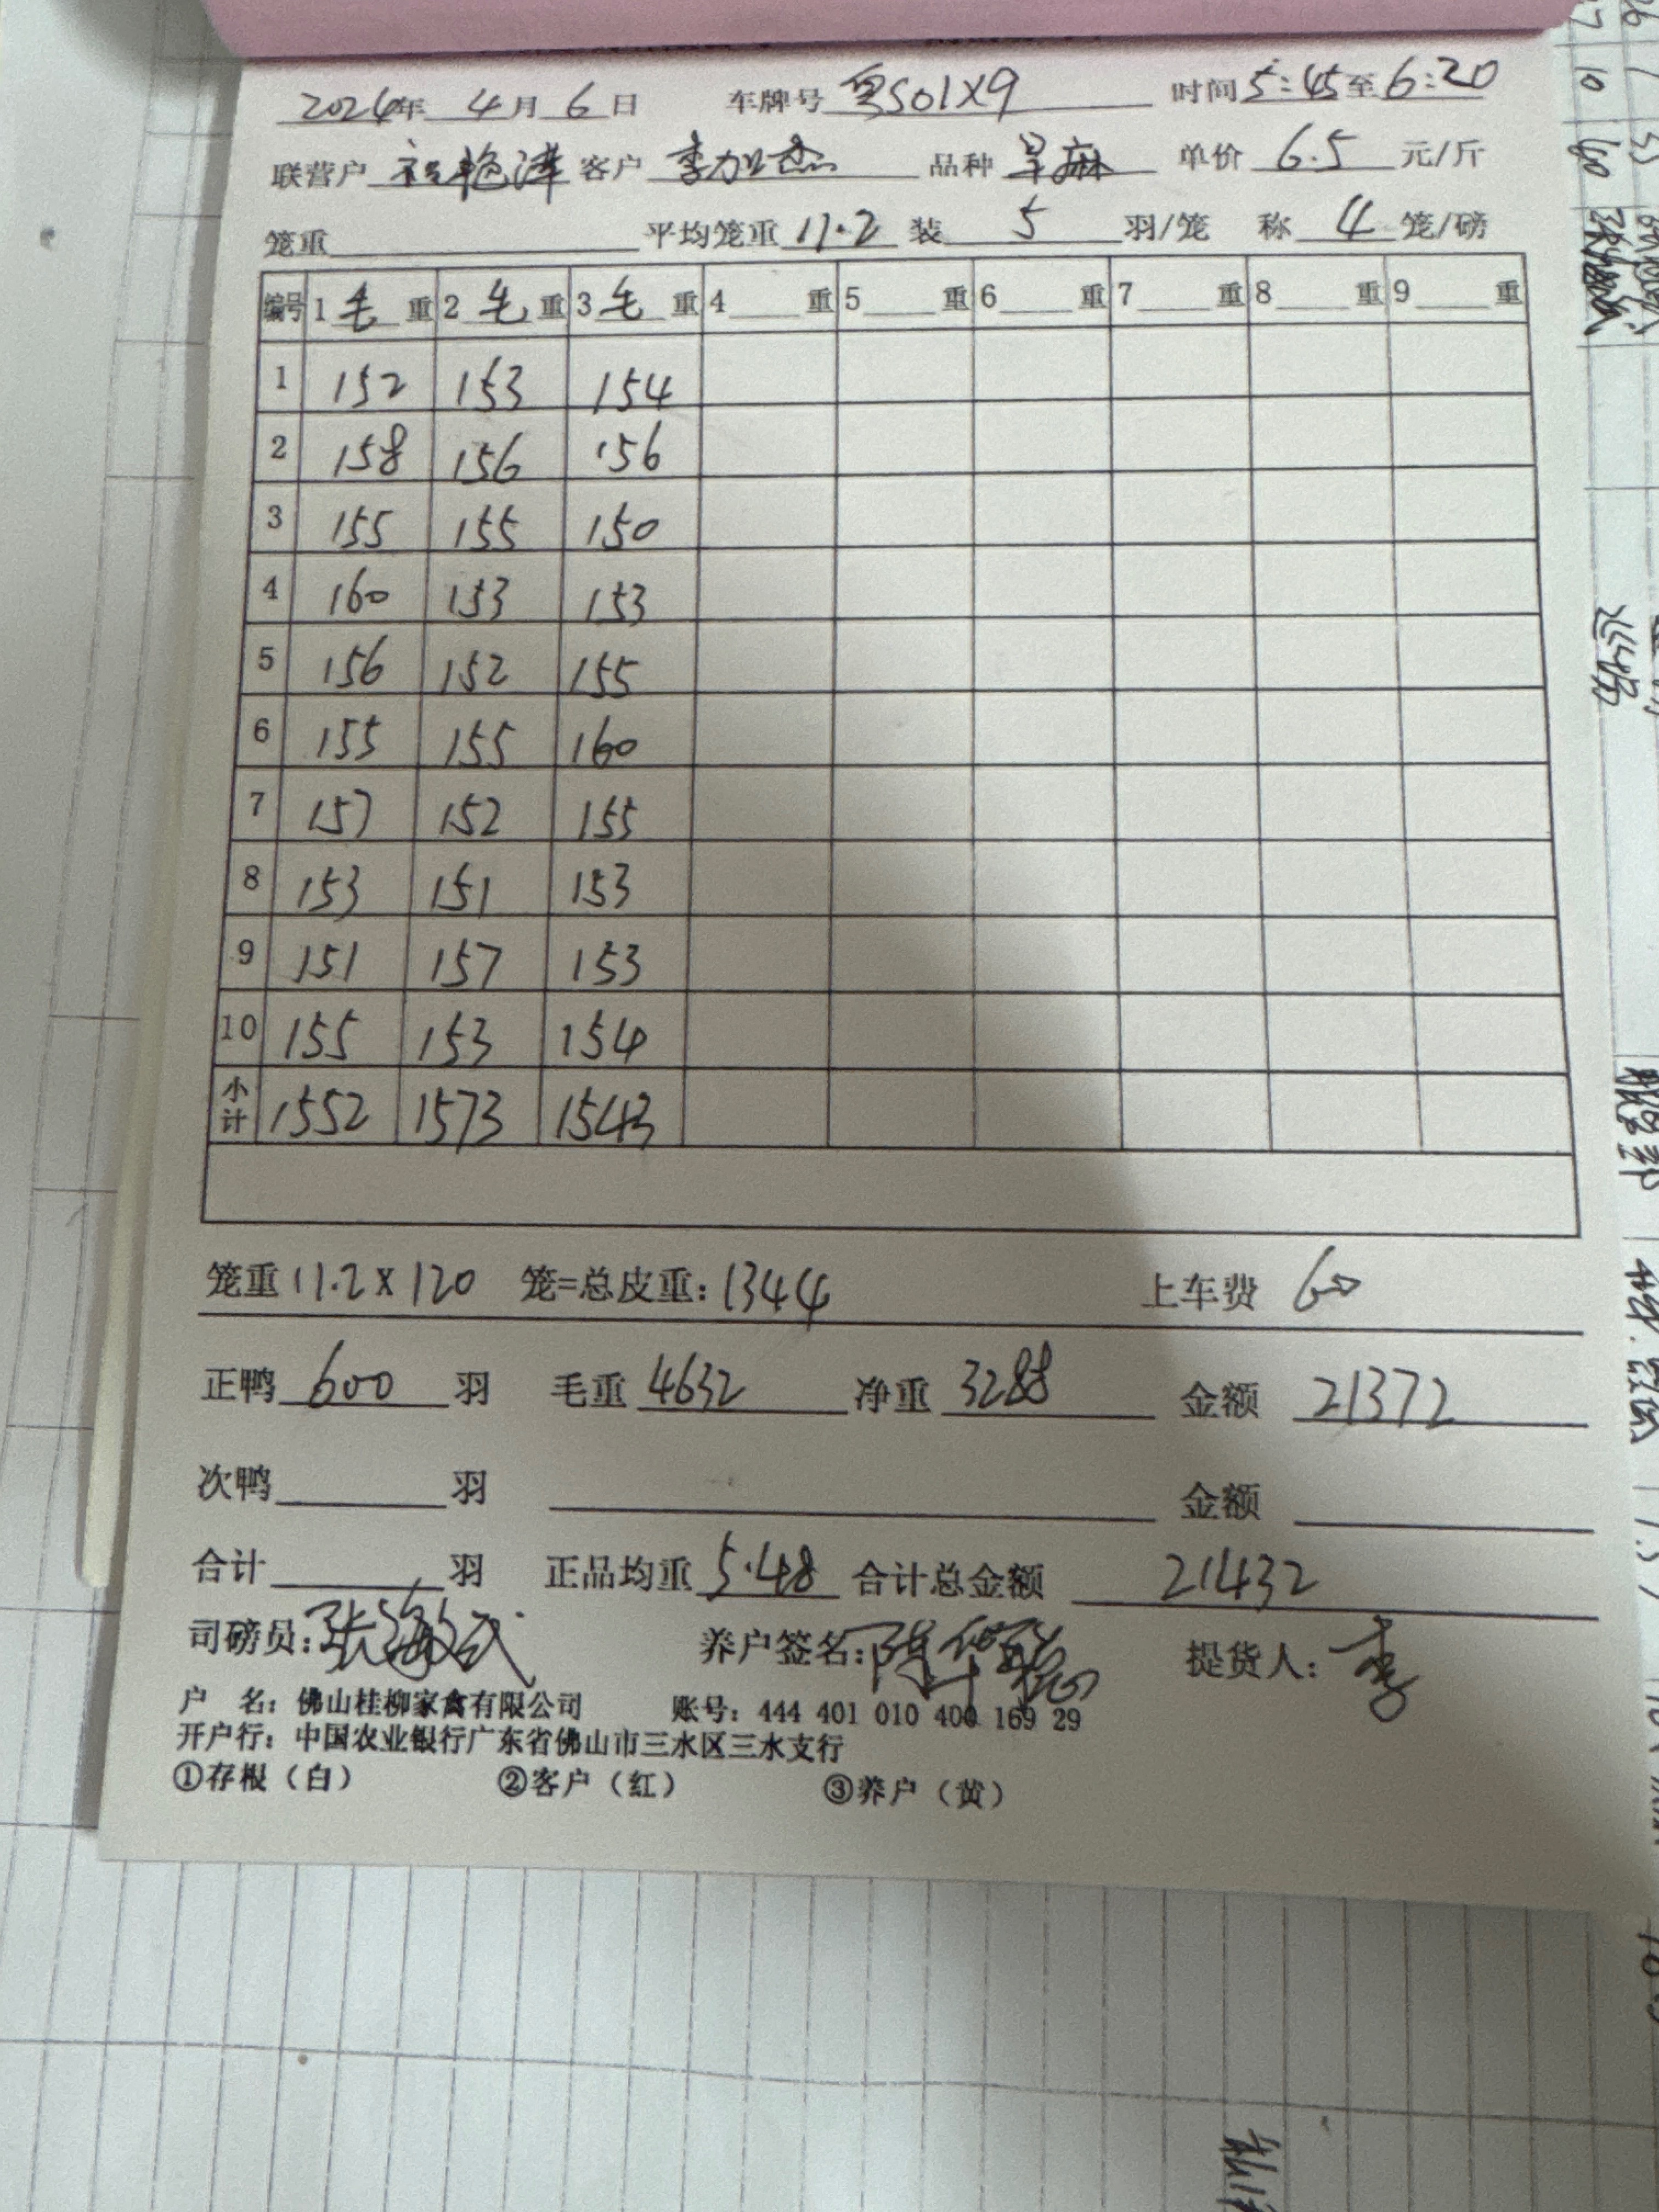 2024年 4月 6日 车牌号 粤S01X9 时间 5:45至 6:20
联营户 客户 李加杰 品种 呈麻 单价 6.5 元/斤
笼重 平均笼重 11.2 装 5 羽/笼 称 4 笼/磅
编号 1 毛 重 2 毛 重 3 毛 重 4 重 5 重 6 重 7 重 8 重 9 重
1 152 153 154
2 158 156 156
3 155 155 150
4 160 153 153
5 156 152 155
6 155 155 160
7 157 152 155
8 153 151 153
9 151 157 153
10 155 153 154
小计 1552 1573 1543
笼重 11.2 X 120 笼=总皮重: 1344 上车费 60
正鸭 600 羽 毛重 4632 净重 3288 金额 21372
次鸭 羽 金额
合计 羽 正品均重 5.48 合计总金额 21432
司磅员: 张海武 养户签名: 陈 提货人: 李
户 名: 佛山桂柳家禽有限公司 账号: 444 401 010 400 169 29
开户行: 中国农业银行广东省佛山市三水区三水支行
①存根（白） ②客户（红） ③养户（黄）